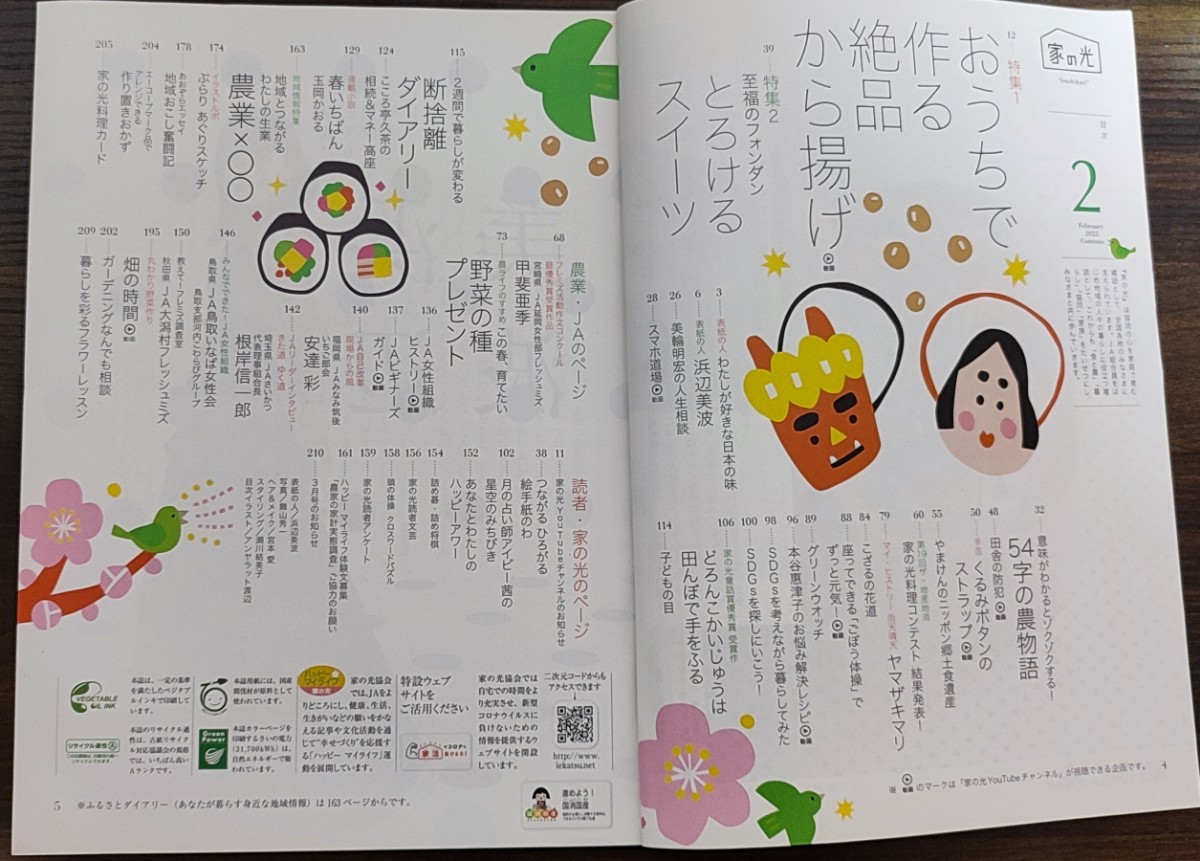 家の光
目次
2
February
2023
Contents
12
特集1
おうちで
作る
絶品
から揚げ
動画
39
特集2
至福のフォンダン
とろける
スイーツ
3
表紙の人
わたしが好きな日本の味
6
表紙の人
浜辺美波
26
美輪明宏の人生相談
28
スマホ道場
動画
32
意味がわかるとゾクゾクする!
54字の農物語
48
田舎の防犯
動画
50
手芸
くるみボタンの
ストラップ
動画
55
やまけんのニッポン郷土食遺産
60
第19回ザ・地産地消
家の光料理コンテスト 結果発表!
79
マイ・ヒストリー 雨天晴天
ヤマザキマリ
84
ござるの花道
88
座ってできる「ごぼう体操」で
ずっと元気!
動画
89
グリーンウオッチ
96
本谷惠津子のお悩み解決レシピ
動画
98
SDGsを考えながら暮らしてみた
100
SDGsを探しにいこう!
106
家の光童話賞優秀賞 受賞作
どろんこかいじゅうは
田んぼで手をふる
114
子どもの目
※
動画
のマークは「家の光YouTubeチャンネル」が視聴できる企画です。
4
115
2週間で暮らしが変わる
断捨離
ダイアリー
124
こころ亭久茶の
相続&マネー高座
129
連載小説
春いちばん
玉岡かおる
163
地域情報特集
地域とつながる
わたしの生業
農業×〇〇
174
イラストルポ
ぶらり あぐりスケッチ
178
あおぞらエッセイ
地域おこし奮闘記
204
エーコープマーク品で
アレンジできる
作り置きおかず
205
家の光料理カード
農業・JAのページ
68
フレミズ活動作文コンクール
最優秀賞受賞作品
宮崎県 JA延岡女性部フレッシュミズ
甲斐亜季
73
農ライフのすすめ この春、育てたい
野菜の種
プレゼント
136
JA女性組織
ヒストリー
動画
137
JAビギナーズ
ガイド
動画
140
JA自己改革
現場からの風
福岡県 JAみなみ筑後
いちご部会
安達 彩
142
JAリーダーインタビュー
きた道 ゆく道
埼玉県 JAさいかつ
代表理事組合長
根岸信一郎
146
みんなでできた! JA女性組織
鳥取県 JA鳥取いなば女性会
鳥取支部河内こわらびグループ
150
教えて! フレミズ調査室
秋田県 JA大潟村フレッシュミズ
195
丸わかり野菜作り
畑の時間
動画
202
ガーデニングなんでも相談
209
暮らしを彩るフラワーレッスン
読者・家の光のページ
11
家の光YouTubeチャンネルのお知らせ
38
つながる ひろがる
絵手紙のわ
102
月の占い師アイビー茜の
星空のみちびき
152
あなたとわたしの
ハッピーアワー
154
詰め碁・詰め将棋
156
家の光読者文芸
158
頭の体操 クロスワードパズル
159
家の光読者アンケート
161
ハッピー マイライフ体験文募集
「農家の家計実態調査」ご協力のお願い
210
3月号のお知らせ
表紙の人/浜辺美波
写真/舞山秀一
ヘア&メイク/宮本 愛
スタイリング/瀬川結美子
目次イラスト/アンヤラット渡辺
VEGETABLE
OIL INK
本誌は、一定の基準
を満たしたベジタブ
ルインキで印刷して
います。
リサイクル適性Ⓐ
本誌のリサイクル適
性は、古紙リサイク
ル対応協議会の規格
では、いちばん高い
Aランクです。
本誌用紙には、国産
間伐材が原料として
使われています。
Green
Power
本誌カラーページを
印刷するさいの電力
(31,700kWh)は、
自然エネルギーで賄
われています。
ハッピー
マイライフ
家の光
家の光協会
では、JAをよ
りどころにし、健康、生活、
生きがいなどの願いをかな
える記事や文化活動を通
じて“幸せづくり”を応援す
る「ハッピー マイライフ」運
動を展開しています。
特設ウェブ
サイトを
ご活用ください
家活
家の光協会では
自宅での時間をよ
り充実させ、新型
コロナウイルスに
負けないための
情報を提供するウ
ェブサイトを開設
しています。
二次元コードからも
アクセスできます
http://www.
iekatsu.net
進めよう!
国消国産
5
※ふるさとダイアリー(あなたが暮らす身近な地域情報)は163ページからです。